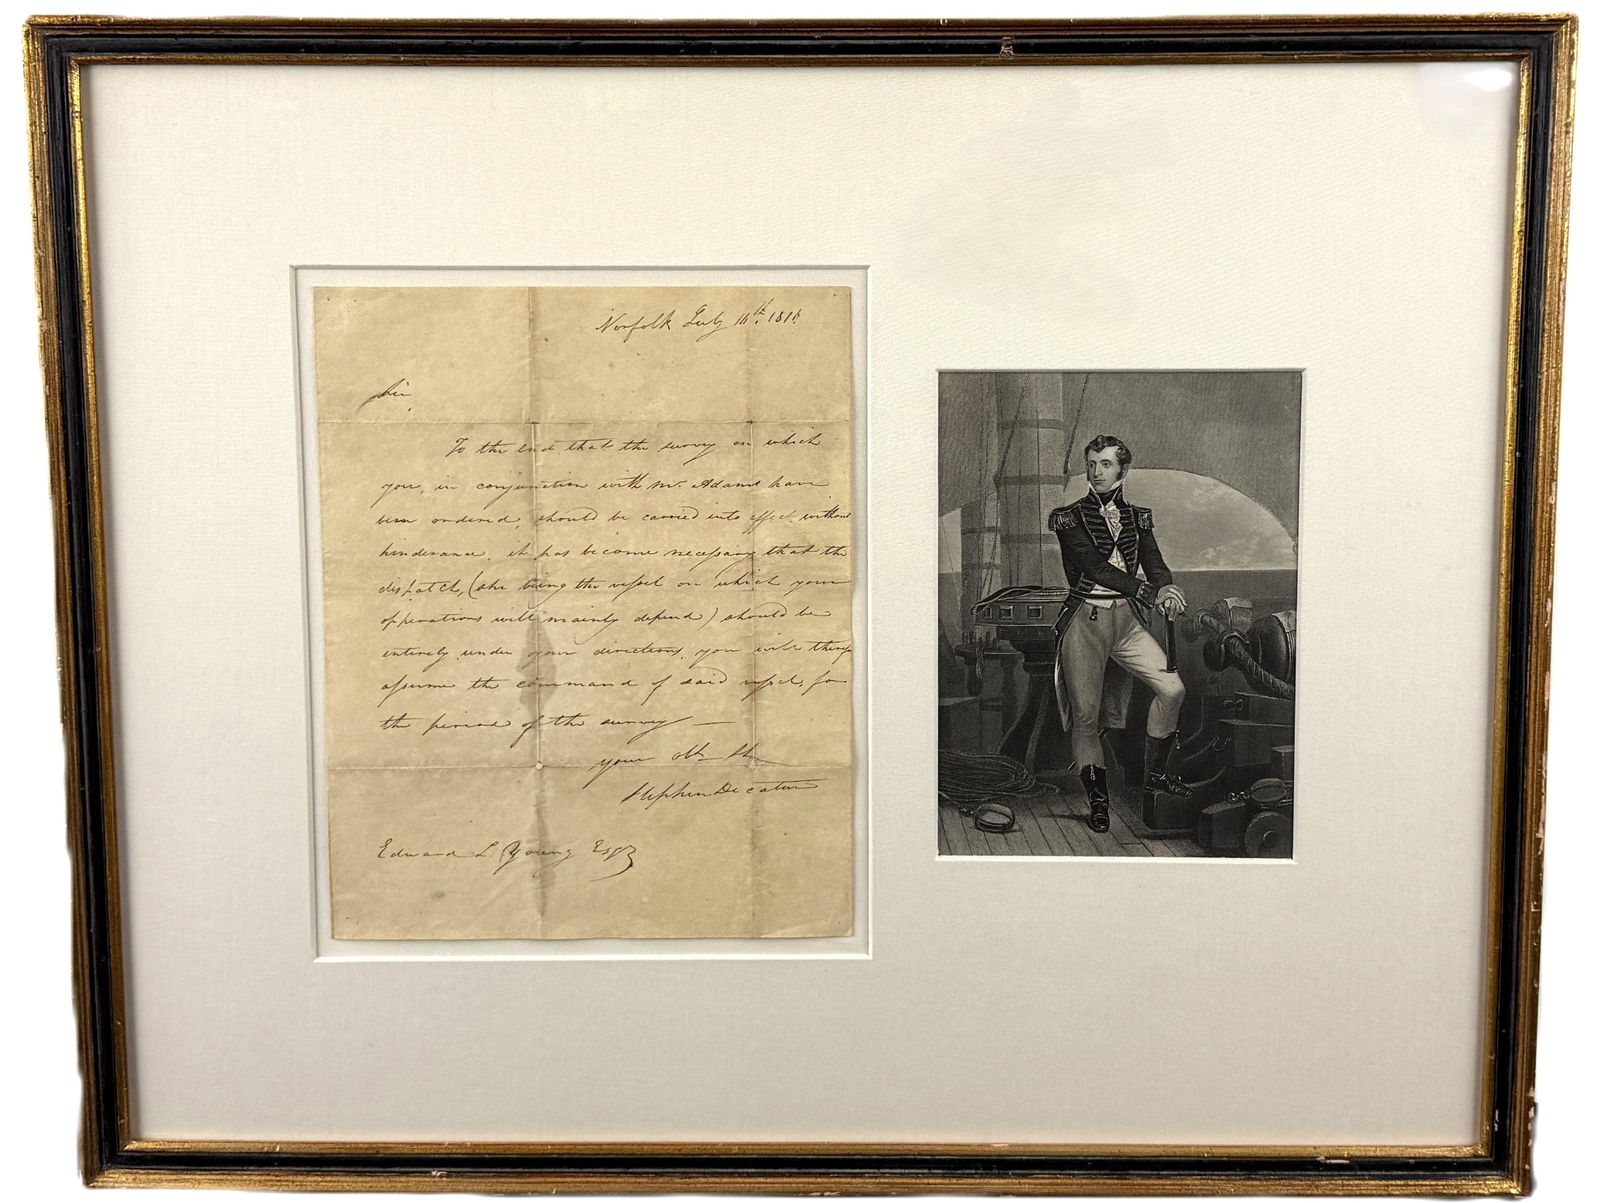 Norfolk July 16th. 1810.
Sir
To the end that the survey on which
you, in conjunction with Mr. Adams have
been ordered, should be carried into effect without
hinderance, it has become necessary that the
dispatch, (she being the vessel on which your
opperations will mainly depend) should be
entirely under your directions, you will
assume the command of said vessel, for
the period of the survey —
your Obt. St.
Stephen Decatur
Edward L. Young Esqr